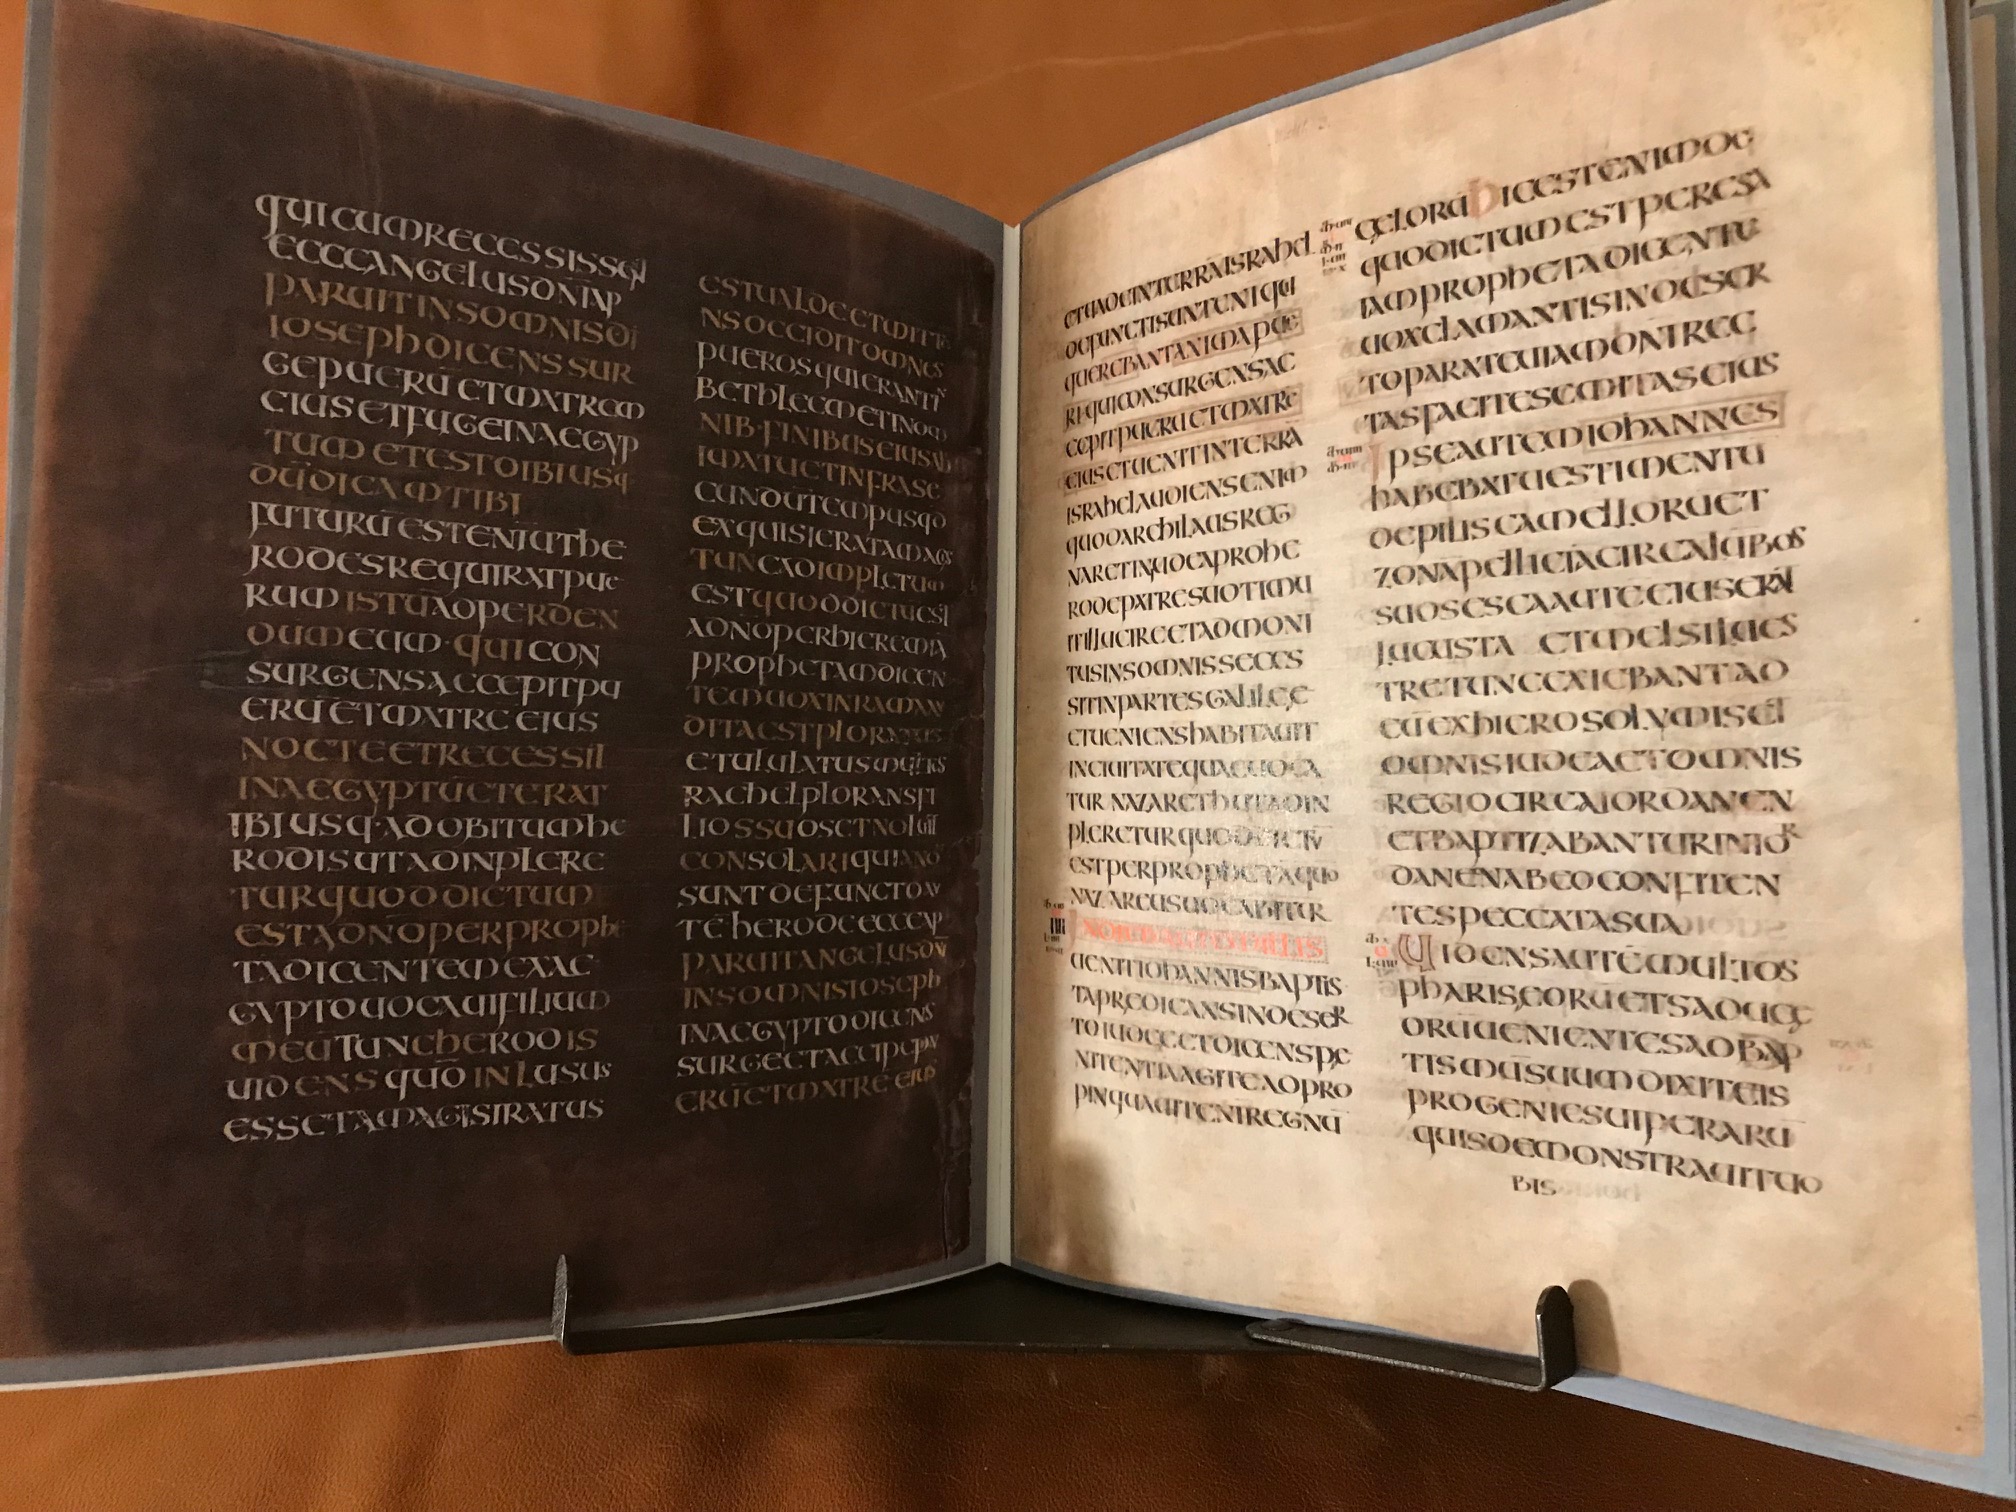 QUI CUM RECESSISSEN
ECCE ANGELUS DNI AP
PARUIT IN SOMNIS DI
IOSEPH DICENS SUR
GE PUERŪ ET MATREM
EIUS ET FUGE IN AEGYP
TUM ET ESTO IBI USQ
DUM DICAM TIBI
FUTURŪ EST ENIM UT HE
RODES REQUIRAT PUE
RUM ISTUM AD PERDEN
DUM EUM · QUI CON
SURGENS ACCEPIT PU
ERŪ ET MATRE EIUS
NOCTE ET RECESSIT
IN AEGYPTŪ ET ERAT
IBI USQ· AD OBITUM HE
RODIS UT ADINPLERE
TUR QUOD DICTUM
EST A DNŌ PER PROPHE
TA DICENTEM EX AE
GYPTO UOCAUI FILIUM
MEŪ TUNC HERODIS
UIDENS QUŌ INLUSUS
ESSET A MAGIS IRATUS
EST UALDE ET MITTE
NS OCCIDIT OMNES
PUEROS QUI ERANT IN
BETHLEEM ET IN OM
NIB· FINIBUS EIUS AB
IMATU ET INFRA SE
CUNDU TEMPUS QD
EXQUISIERAT A MAGIS
TUNC ADIMPLETUM
EST QUOD DICTU EST
A DNO PER HIEREMIĀ
PROPHETAM DICEN
TEM UOX IN RAMA AU
DITA EST PLORATUS
ET ULULATUS MULTUS
RACHEL PLORANS FI
LIOS SUOS ET NOLUIT
CONSOLARI QUIA NO
SUNT DEFUNCTO AU
TĒ HERODE ECCE AP
PARUIT ANGELUS DNI
IN SOMNIS IOSEPH
IN AEGYPTO DICENS
SURGE ET ACCIPE PU
ERŪ ET MATRĒ EIUS
ET UADE IN TERRĀ ISRAHEL
DEFUNCTI SUNT ENI QUI
QUEREBANT ANIMA PUE
RI · QUI CONSURGENS AC
CEPIT PUERU ET MATRE
EIUS ET UENIT IN TERRA
ISRAHEL AUDIENS ENIM
QUOD ARCHILAUS REG
NARET IN IUDEA PRO HE
RODE PATRE SUO TIMU
IT ILLUC IRE ET ADMONI
TUS IN SOMNIS SECES
SIT IN PARTES GALILEE
ET UENIENS HABITAUIT
IN CIUITATE QUAE UOCA
TUR NAZARETH UT ADIN
PLERETUR QUOD DICTŪ
EST PER PROPHETA QUO
NAZAREUS UOCABITUR
IN DIEBUS ILLIS
UENIT IOHANNIS BAPTIS
TA PREDICANS IN DESER
TO IUDEE ET DICENS PE
NITENTIA AGITE ADPRO
PINQUAUIT ENI REGNŪ
CELORŪ HIC EST ENIM DE
QUO DICTUM EST PER ESA
IAM PROPHETA DICENTE
UOX CLAMANTIS IN DESER
TO PARATE UIAM DNI REC
TAS FACITE SEMITAS EIUS
IPSE AUTEM IOHANNES
HABEBAT UESTIMENTU
DE PILIS CAMELLORU ET
ZONĀ PELLICIĀ CIRCA LŪBOS
SUOS ESCA AUTĒ EIUS ERAT
LUCUSTA ET MEL SILUES
TRE TUNC EXIEBANT AD
EŪ EX HIEROSOLYMIS ET
OMNIS IUDEA ET OMNIS
REGIO CIRCA IORDANEN
ET BAPTIZABANTUR IN IOR
DANEN AB EO CONFITEN
TES PECCATA SUA
UIDENS AUTĒ MULTOS
PHARISEORŪ ET SADUCE
ORŪ UENIENTES AD BAP
TISMŪ SUUM DIXIT EIS
PROGENIES UIPERARU
QUIS DEMONSTRAUIT UO
BIS